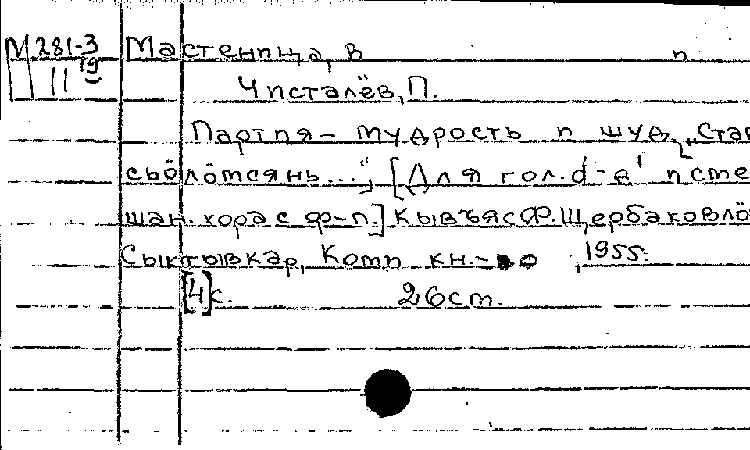 М 281-3 Мастеница, В п
II 19 Чисталёв, П.
Партия – мудрость п шуд, „Стаг
сьöлöтсянь...", [Для гол. d-e' п сме
шан. хора с ф-п.] Кывъяс Ф. Щербаковлö
Сыктывкар, Коми кн.- о , 1955.
[4] с. 26 cm.